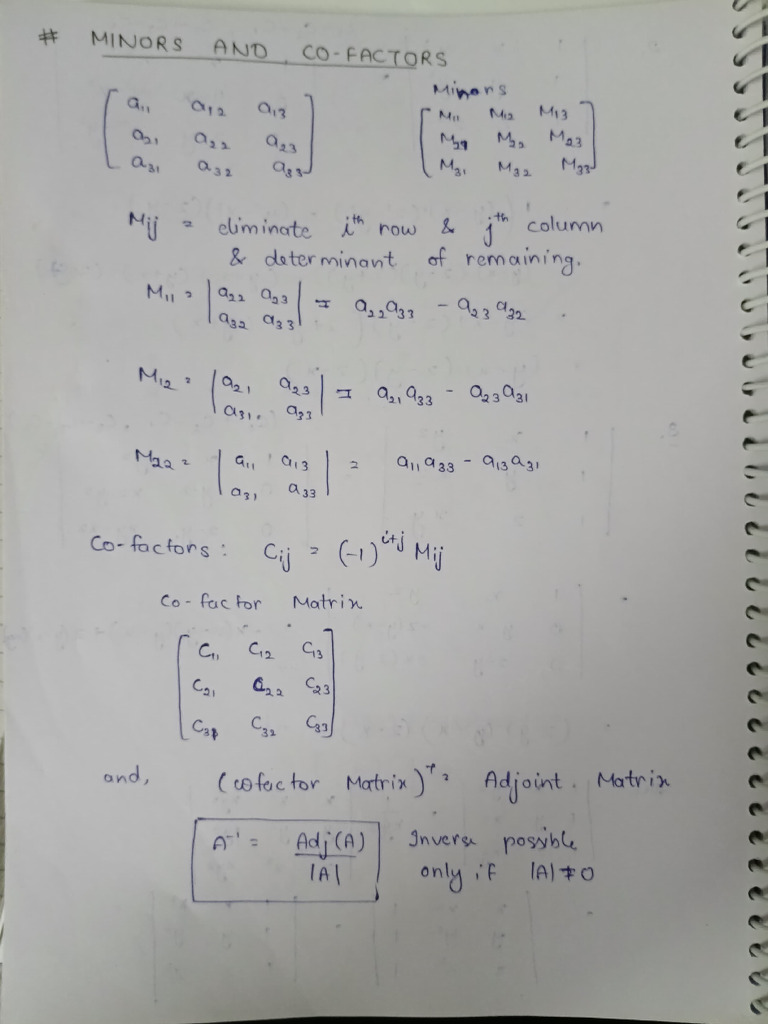 # MINORS AND CO-FACTORS
Minors
[a₁₁ a₁₂ a₁₃] [M₁₁ M₁₂ M₁₃]
[a₂₁ a₂₂ a₂₃] [M₂₁ M₂₂ M₂₃]
[a₃₁ a₃₂ a₃₃] [M₃₁ M₃₂ M₃₃]
Mij = eliminate iᵗʰ row & jᵗʰ column
& determinant of remaining.
M₁₁ = |a₂₂ a₂₃| = a₂₂a₃₃ - a₂₃a₃₂
|a₃₂ a₃₃|
M₁₂ = |a₂₁ a₂₃| = a₂₁a₃₃ - a₂₃a₃₁
|a₃₁ a₃₃|
M₂₂ = |a₁₁ a₁₃| = a₁₁a₃₃ - a₁₃a₃₁
|a₃₁ a₃₃|
Co-factors : Cij = (-1)^(i+j) Mij
Co-factor Matrix
[C₁₁ C₁₂ C₁₃]
[C₂₁ C₂₂ C₂₃]
[C₃₁ C₃₂ C₃₃]
and, (cofactor Matrix)ᵀ = Adjoint Matrix
A⁻¹ = Adj(A) Inverse possible
|A| only if |A| ≠ 0